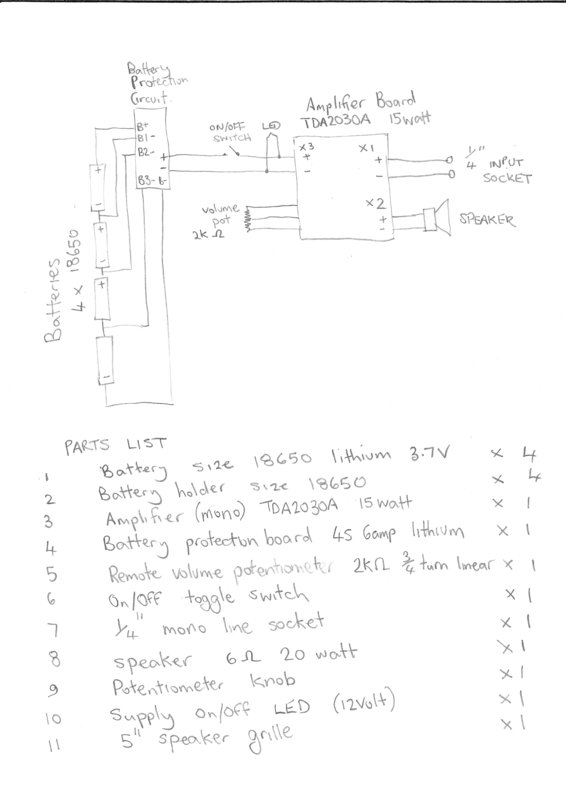 Battery
Protection
Circuit.
Amplifier Board
TDA2030A 15watt
ON/OFF
SWITCH
LED
B+
B1-
B2-
B3-
B-
+
-
X3
+
-
X1
+
-
1/4" INPUT
SOCKET
X2
+
-
SPEAKER
volume
pot
2KΩ
Batteries
4 x 18650
+
-
+
-
+
-
PARTS LIST
1 Battery size 18650 lithium 3.7V x 4
2 Battery holder size 18650 x 4
3 Amplifier (mono) TDA2030A 15watt x 1
4 Battery protection board 4S 6amp lithium x 1
5 Remote volume potentiometer 2KΩ 3/4 turn linear x 1
6 On/Off toggle switch x 1
7 1/4" mono line socket x 1
8 speaker 6Ω 20 watt x 1
9 Potentiometer knob x 1
10 Supply On/Off LED (12Volt) x 1
11 5" speaker grille x 1